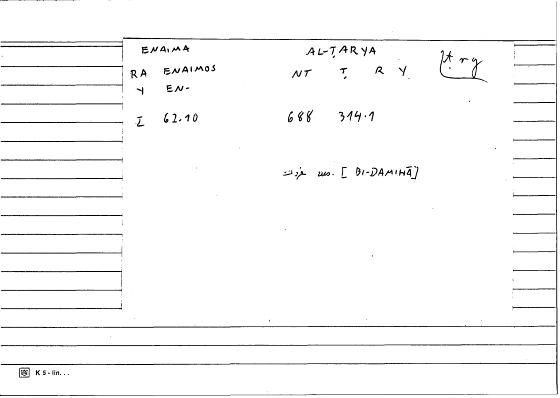 ENAIMA AL-ṬARYA
RA ENAIMOS NT Ṭ R Y ṭry
Y EN-
I 62.10 688 314.1
[BI-DAMIHĀ]
K 5 - lin...